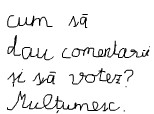 cum să
dau comentarii
și să votez?
Mulțumesc.